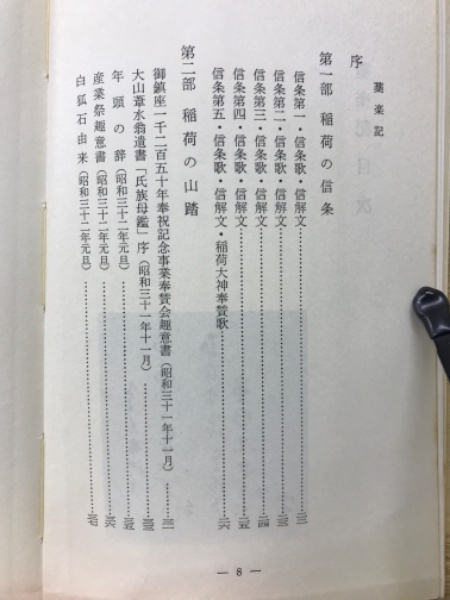 藁楽記
序
第一部 稲荷の信条
信条第一・信条歌・信解文
信条第二・信条歌・信解文
信条第三・信条歌・信解文 二四
信条第四・信条歌・信解文 二五
信条第五・信条歌・信解文・稲荷大神奉賛歌 二六
第二部 稲荷の山踏
御鎮座一千二百五十年奉祝記念事業奉賛会趣意書(昭和三十一年十一月)
大山葦水翁遺書「氏族母鑑」序(昭和三十一年十一月) 三三
年頭の辞(昭和三十二年元旦) 三五
産業祭趣意書(昭和三十二年元旦) 三六
白狐石由来(昭和三十二年元旦) 三七
— 8 —